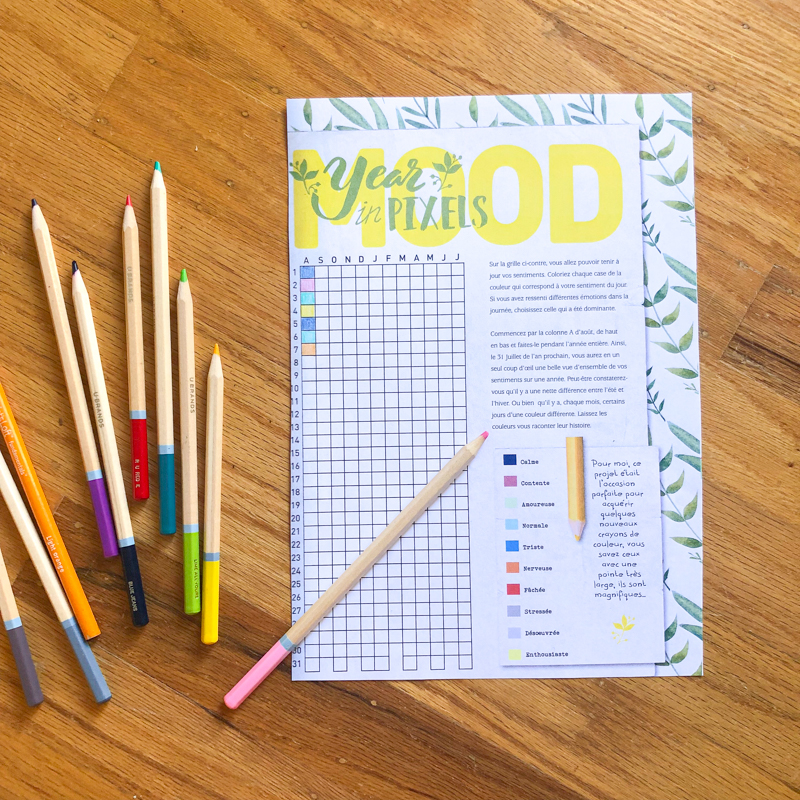 MOOD
Year
in PIXELS
A S O N D J F M A M J J
1
2
3
4
5
6
7
8
9
10
11
12
13
14
15
16
17
18
19
20
21
22
23
24
25
26
27
30
31
Sur la grille ci-contre, vous allez pouvoir tenir à
jour vos sentiments. Coloriez chaque case de la
couleur qui correspond à votre sentiment du jour.
Si vous avez ressenti différentes émotions dans la
journée, choisissez celle qui a été dominante.
Commencez par la colonne A d'août, de haut
en bas et faites-le pendant l'année entière. Ainsi,
le 31 Juillet de l'an prochain, vous aurez en un
seul coup d'œil une belle vue d'ensemble de vos
sentiments sur une année. Peut-être constaterez-
vous qu'il y a une nette différence entre l'été et
l'hiver. Ou bien qu'il y a, chaque mois, certains
jours d'une couleur différente. Laissez les
couleurs vous raconter leur histoire.
Calme
Contente
Amoureuse
Normale
Triste
Nerveuse
Fâchée
Stressée
Désœuvrée
Enthousiaste
Pour moi, ce
projet était
l'occasion
parfaite pour
acquérir
quelques
nouveaux
crayons de
couleur, vous
savez ceux
avec une
pointe très
large, ils sont
magnifiques...
U BRANDS
U BRANDS
U BRANDS
Light orange
BLUE JEANS